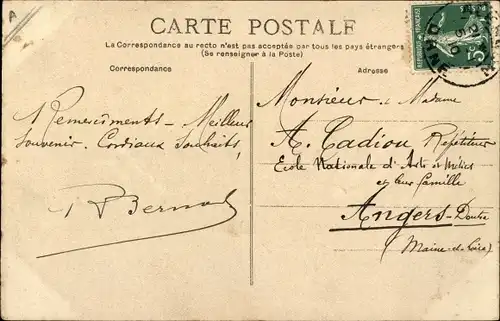 CARTE POSTALE
La Correspondance au recto n'est pas acceptée par tous les pays étrangers
(Se renseigner à la Poste)
Correspondance
Adresse
Remerciments - Meilleur
Souvenir. Cordiaux Souhaits,
Monsieur et Madame
A. Cadiou Répétiteur
Ecole Nationale d'Arts et Métiers
et leur famille
Angers - Doutre
(Maine-et-Loire)
5c